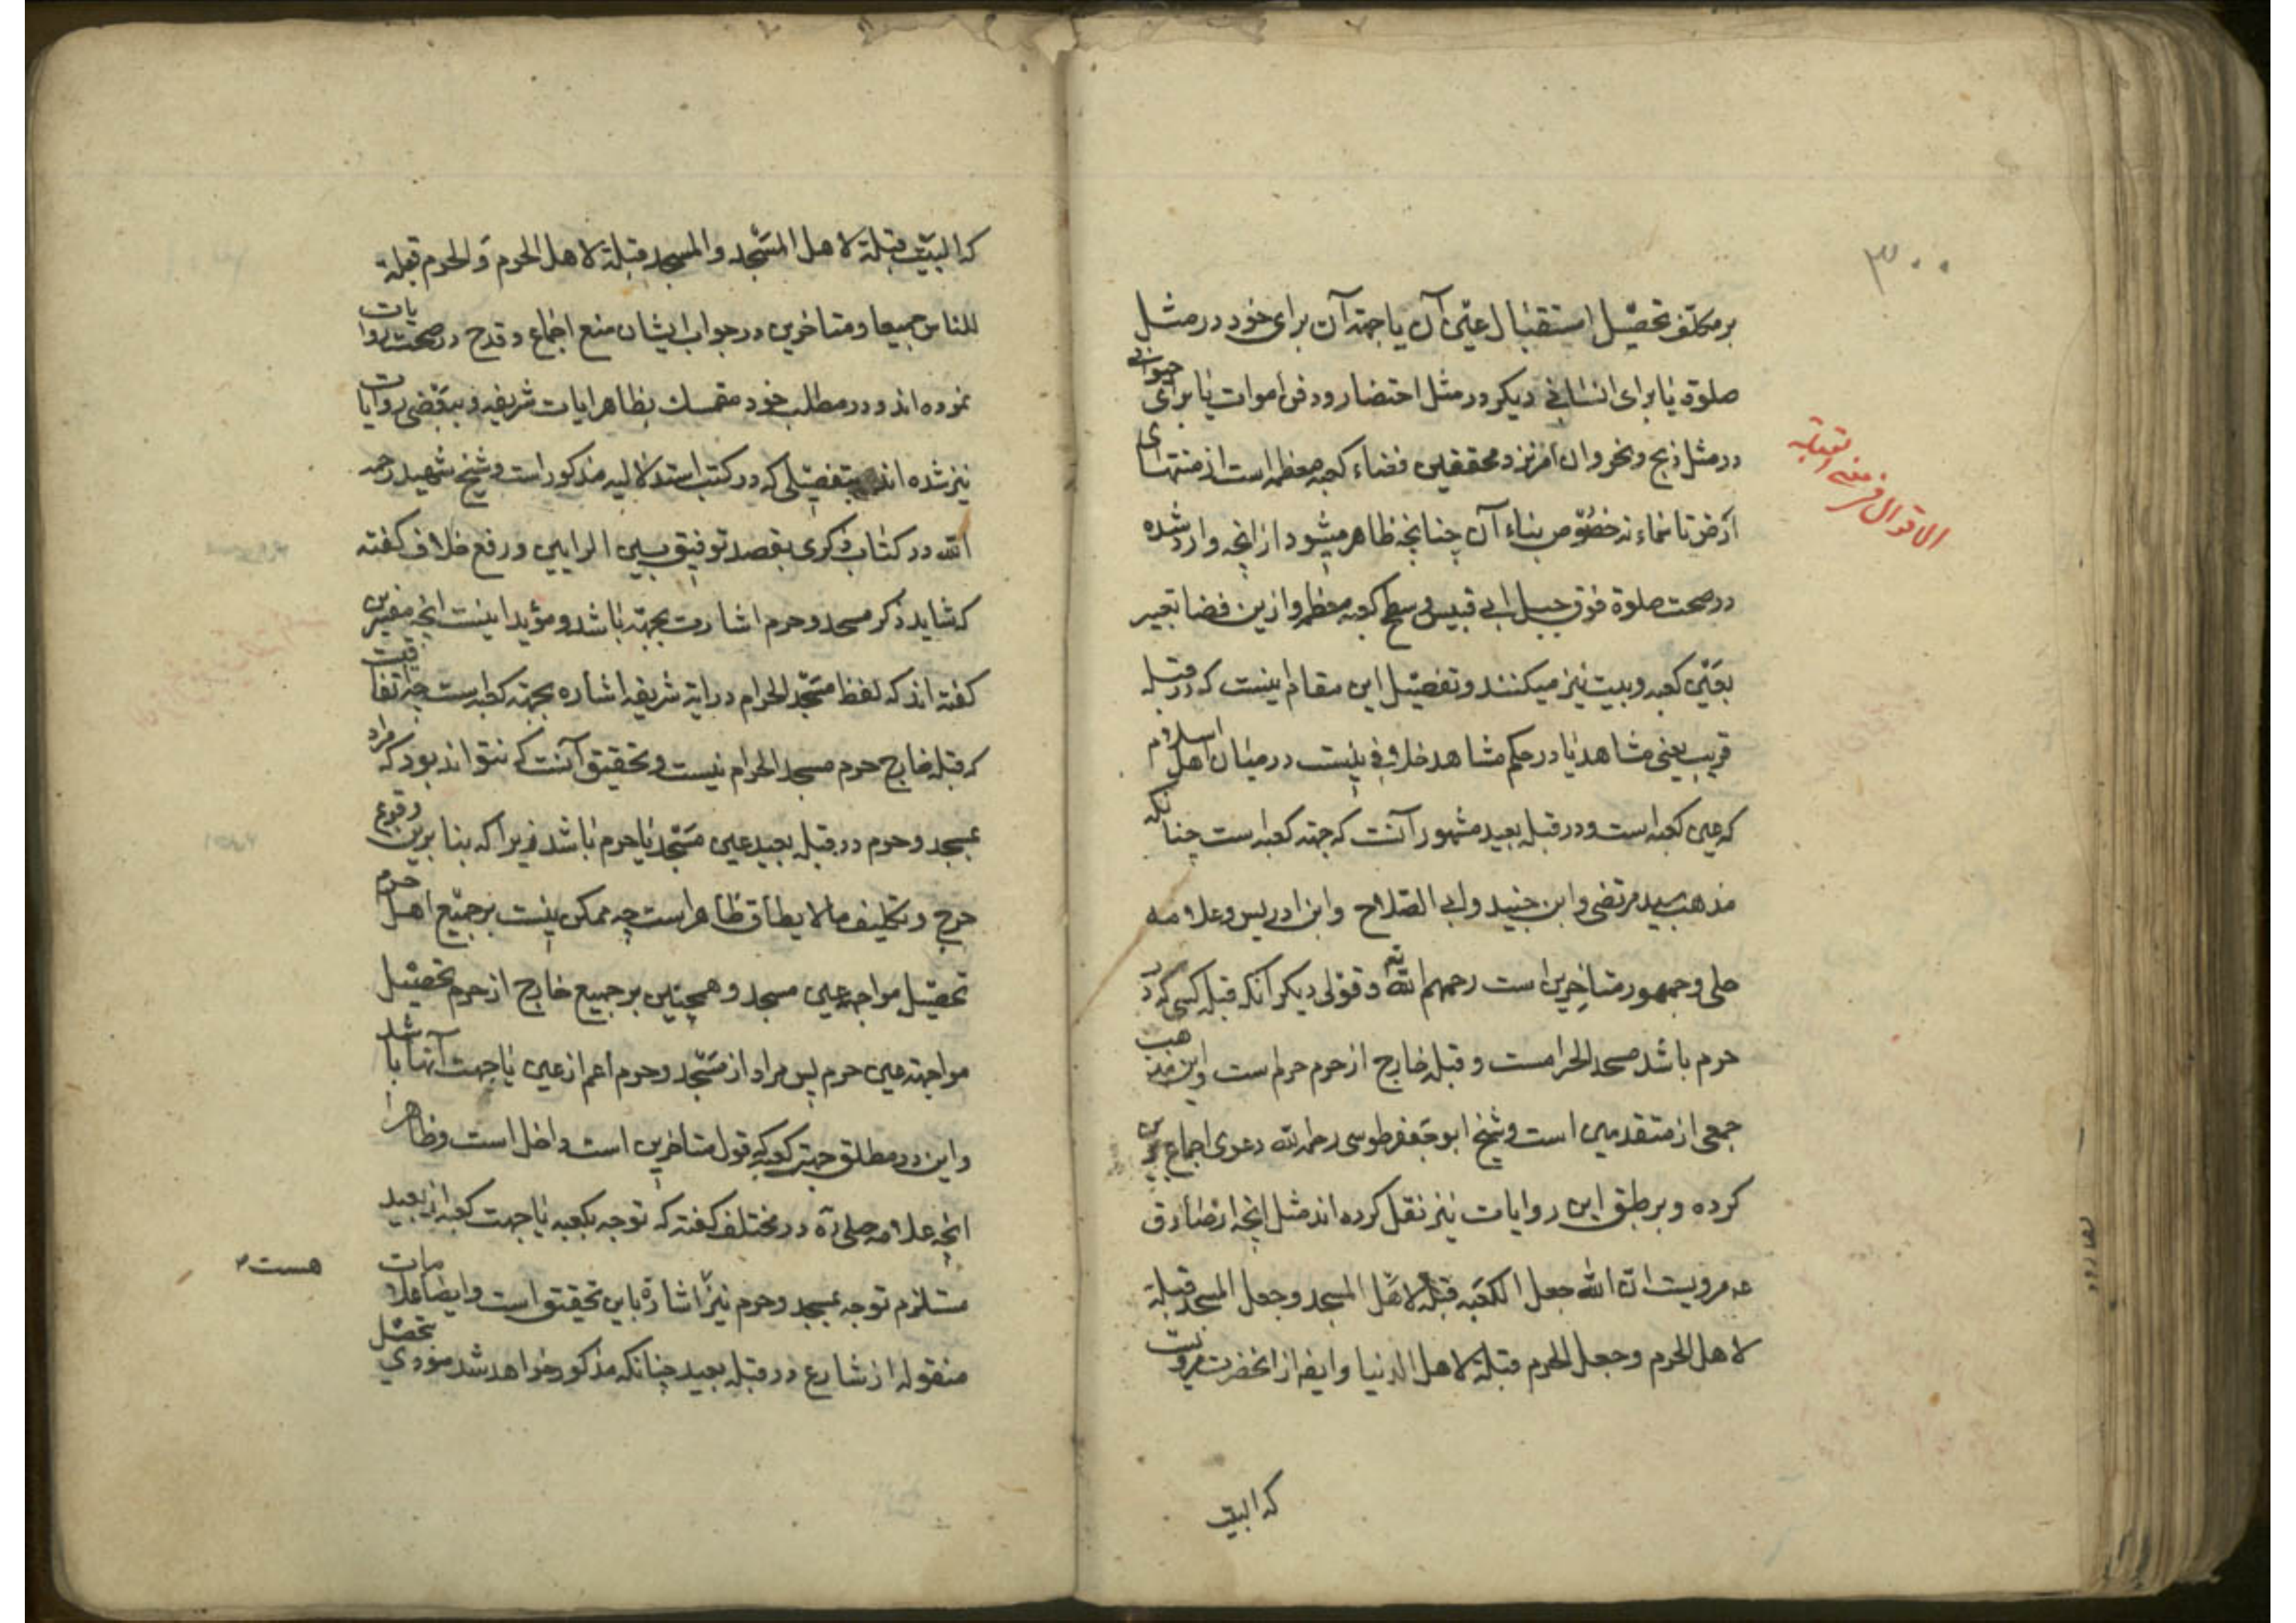 ۳۰۰
بر مکلف تحصیل استقبال عین آن یا جهة آن برای خود در مثل
صلوة یا برای انسانی دیکر در مثل احتضار و دفن اموات یا برای حیوانی
در مثل ذبح و نحر و ان امر نزد محققین فضاء کعبه معظمه است از منتهای
ارض تا سماء نه خصوص بناء آن چنانچه ظاهر میشود از انچه وارد شده
در صحت صلوة فوق جبل ابی قبیس و سطح کعبه معظمه و ازین فضا تعبیر
بعین کعبه و بیت نیز میکنند و تفصیل این مقام اینست که در قبلهٔ
قریب یعنی مشاهد یا در حکم مشاهد خلافی نیست در میان اهل اسلام
که عین کعبه است و در قبلهٔ بعید مشهور آنست که جهة کعبه است چنانکه
مذهب سید مرتضی و ابن جنید و ابی الصلاح و ابن ادریس و علامه
حلی و جمهور متاخرین است رحمهم الله و قولی دیکر آنکه قبلهٔ کسی که در
حرم باشد مسجد الحرامست و قبلهٔ خارج از حرم حرم است و این مذهب
جمعی از متقدمین است و شیخ ابو جعفر طوسی رحمه الله دعوی اجماع برین
کرده و بر طبق این روایات نیز نقل کرده اند مثل انچه از صادق
عه مرویست ان الله جعل الکعبه قبلة لاهل المسجد و جعل المسجد قبلة
لاهل الحرم و جعل الحرم قبلة لاهل الدنیا و ایضا از انحضرت مرویست
که البیت
که البیت قبلة لاهل المسجد والمسجد قبلة لاهل الحرم والحرم قبلة
للناس جمیعا و متاخرین در جواب ایشان منع اجماع و قدح در صحت روایات
نموده اند و در مطلب خود متمسك بظاهر ایات شریفه و ببعضی روایات
نیز شده اند بتفصیلی که در کتب استدلالیه مذکور است و شیخ شهید رحمه
الله در کتاب ذکری بقصد توفیق بین الرایین و رفع خلاف کفته
که شاید ذکر مسجد و حرم اشارت بجهة باشد و مؤید اینست انچه مفسرین
کفته اند که لفظ مسجد الحرام در ایه شریفه اشاره بجهة کعبه است چه اتفاقیست
که قبلهٔ خارج حرم مسجد الحرام نیست و تحقیق آنست که نتواند بود که مراد
بمسجد و حرم در قبلهٔ بعید عین مسجد یا حرم باشد زیرا که بنا برین وقوع
حرج و تکلیف ما لا یطاق ظاهر است چه ممکن نیست بر جمیع اهل حرم
تحصیل مواجهه عین مسجد و همچنین بر جمیع خارج از حرم تحصیل
مواجهه عین حرم پس مراد از مسجد و حرم اعم از عین یا جهت آنها باشد
و این در مطلق جهة کعبه که قول متاخرین است داخل است و ظاهرا
انچه علامه حلی ره در مختلف کفته که توجه بکعبه یا جهت کعبه از بعید
مستلزم توجه بمسجد و حرم نیز هست اشارة باین تحقیق است و ایضا علامات
منقوله از شارع در قبلهٔ بعید چنانکه مذکور خواهد شد مؤدی بتحصیل